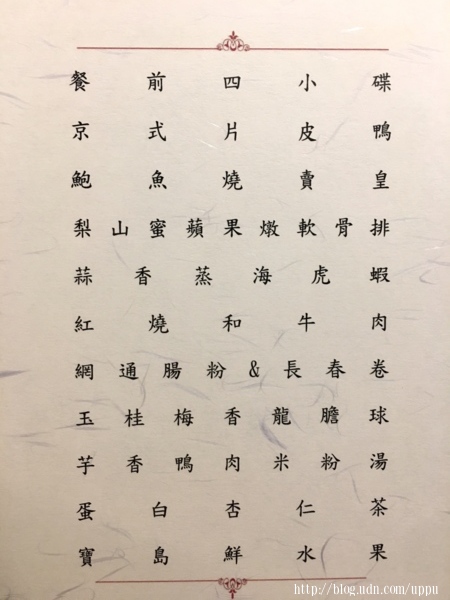 餐前四小碟
京式片皮鴨
鮑魚燒賣皇
梨山蜜蘋果燉軟骨排
蒜香蒸海虎蝦
紅燒和牛肉
網通腸粉&長春卷
玉桂梅香龍膽球
芋香鴨肉米粉湯
蛋白杏仁茶
寶島鮮水果
http://blog.udn.com/uppu